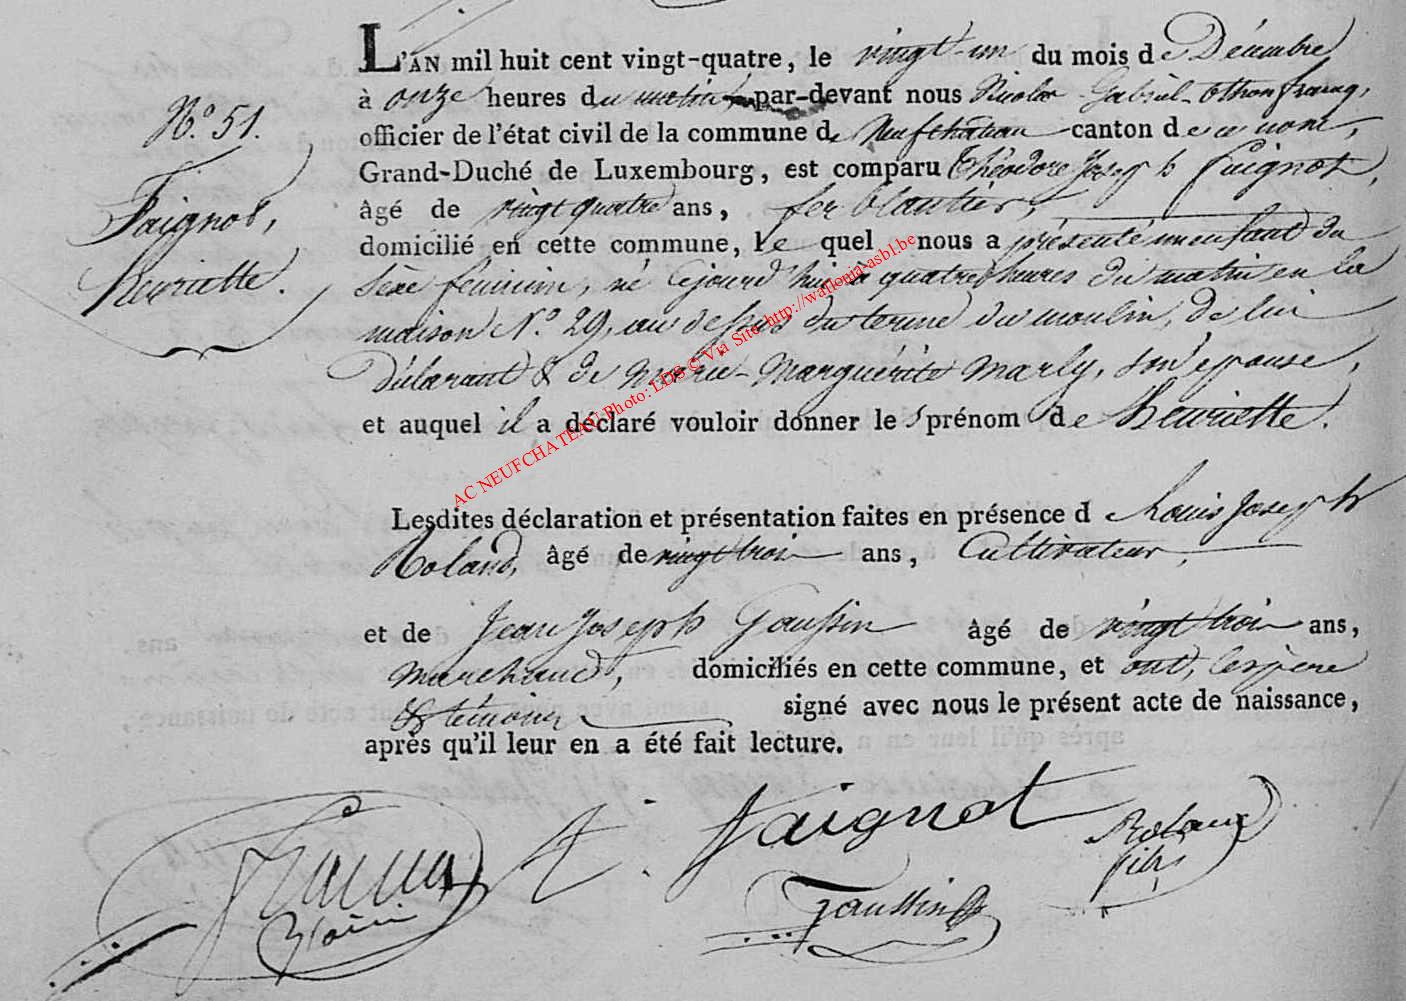 N.o 51.
Faignot,
henriette.
L'AN mil huit cent vingt-quatre, le vingt-un du mois de Décembre
à onze heures du matin, par-devant nous Nicolas Gabriel-Othon francq,
officier de l'état civil de la commune de Neufchateau canton de ce nom,
Grand-Duché de Luxembourg, est comparu Théodore Joseph Faignot,
âgé de vingt quatre ans, ferblantier,
domicilié en cette commune, le quel nous a présenté un enfant du
sèxe féminin, né cejourd'hui à quatre heures du matin en la
maison N.o 29, au dessus du terme du moulin, de lui
Déclarant & de Marie-Marguérite Marly, son épouse,
et auquel il a déclaré vouloir donner les prénom de henriette.
Lesdites déclaration et présentation faites en présence de Louis Joseph
Roland, âgé de vingt trois ans, Cultivateur,
et de Jean Joseph Gaussin âgé de vingt trois ans,
Marchand, domiciliés en cette commune, et ont, les père
& témoins signé avec nous le présent acte de naissance,
après qu'il leur en a été fait lecture.
Faignot
Roland
fils
Gaussin
AC NEUFCHATEAU Photo: LDS © Via Site http://wallonia-asbl.be